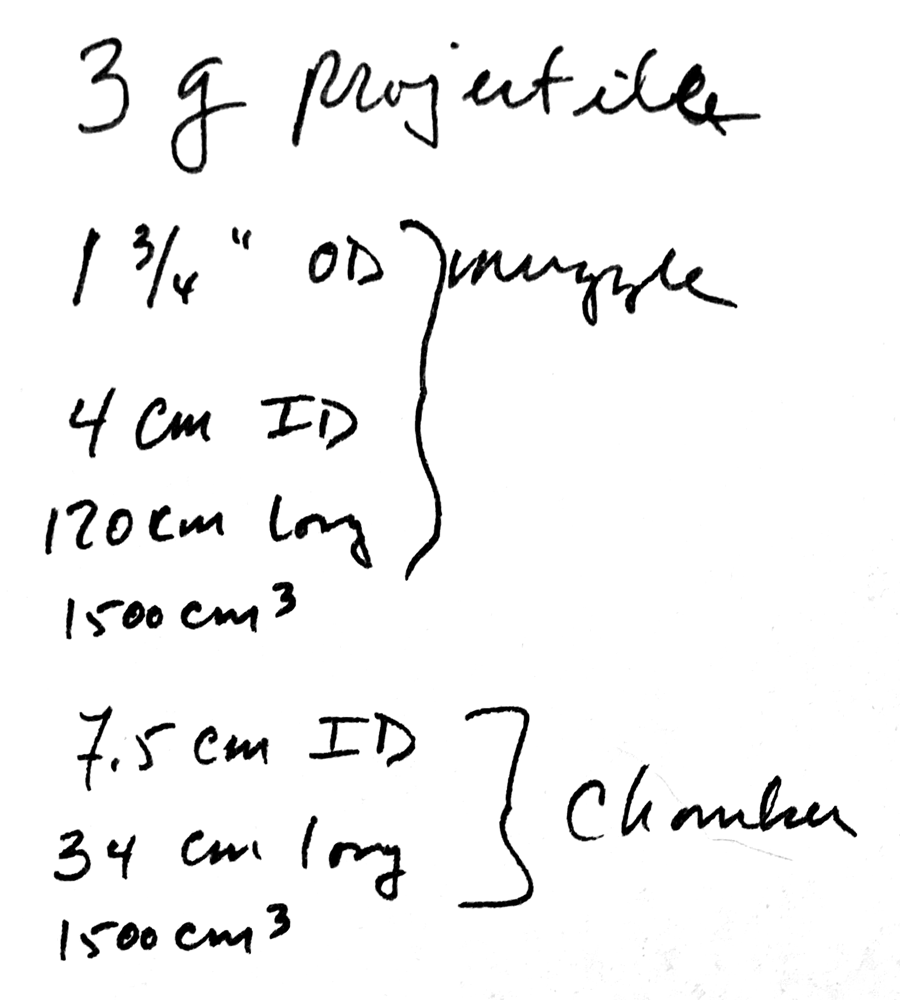 3 g projectile
1 3/4" OD
muzzle
4 cm ID
120 cm long
1500 cm³
7.5 cm ID
34 cm long
Chamber
1500 cm³